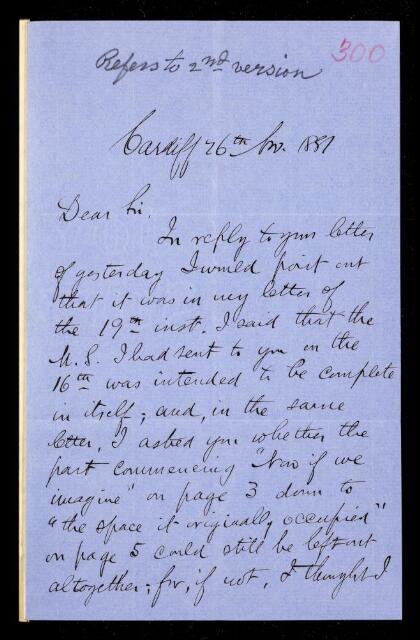 Refers to 2nd version
300
Cardiff 26th Nov. 1881
Dear Sir.
In reply to your letter
of yesterday I would point out
that it was in my letter of
the 19th inst. I said that the
M.S. I had sent to you on the
16th was intended to be complete
in itself; and, in the same
letter, I asked you whether the
part commencing "Now if we
imagine" on page 3 down to
"the space it originally occupied"
on page 5 could still be left out
altogether; for, if not, I thought I